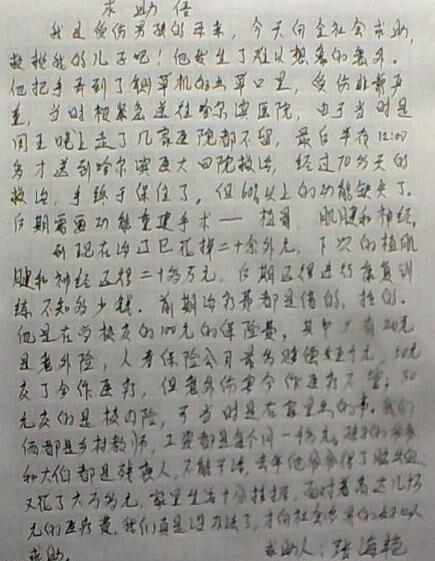 求助信
我是受伤男孩的母亲，今天向全社会求助，
救救我的儿子吧！他发生了难以想象的意外。
他把手弄到了铡草机的出草口里，受伤非常严
重，当时很紧急送往哈尔滨医院，由于当时是
周五晚上走了几家医院都不留，最后半夜12:00
多才送到哈尔滨医大四院救治，经过70多天的
救治，手终于保住了。但60%以上的功能缺失了。
后期需要功能重建手术——植骨、肌腱和神经。
到现在治疗已花掉二十余万元，下次的植肌
腱和神经还得二十多万元，后期还得进行康复训
练不知多少钱。前期治疗费都是借的，
他是在学校交的100元的保险费，其中只有20元
是意外险，人寿保险公司最多赔偿千元，50元
交了合作医疗，但意外伤害合作医疗不管，30
元交的是校园险，可当时是在家里出的事。我们
俩都是乡村教师，工资都是每个月一千多元。孩子的爷爷
和大伯都是残疾人，不能干活，去年他爷爷得了脑出血
又花了六万多元，家里生活十分拮据，面对着高达几十万
元的医疗费，我们真是没办法了，才向社会各界的好心人
求助。 求助人：张海艳